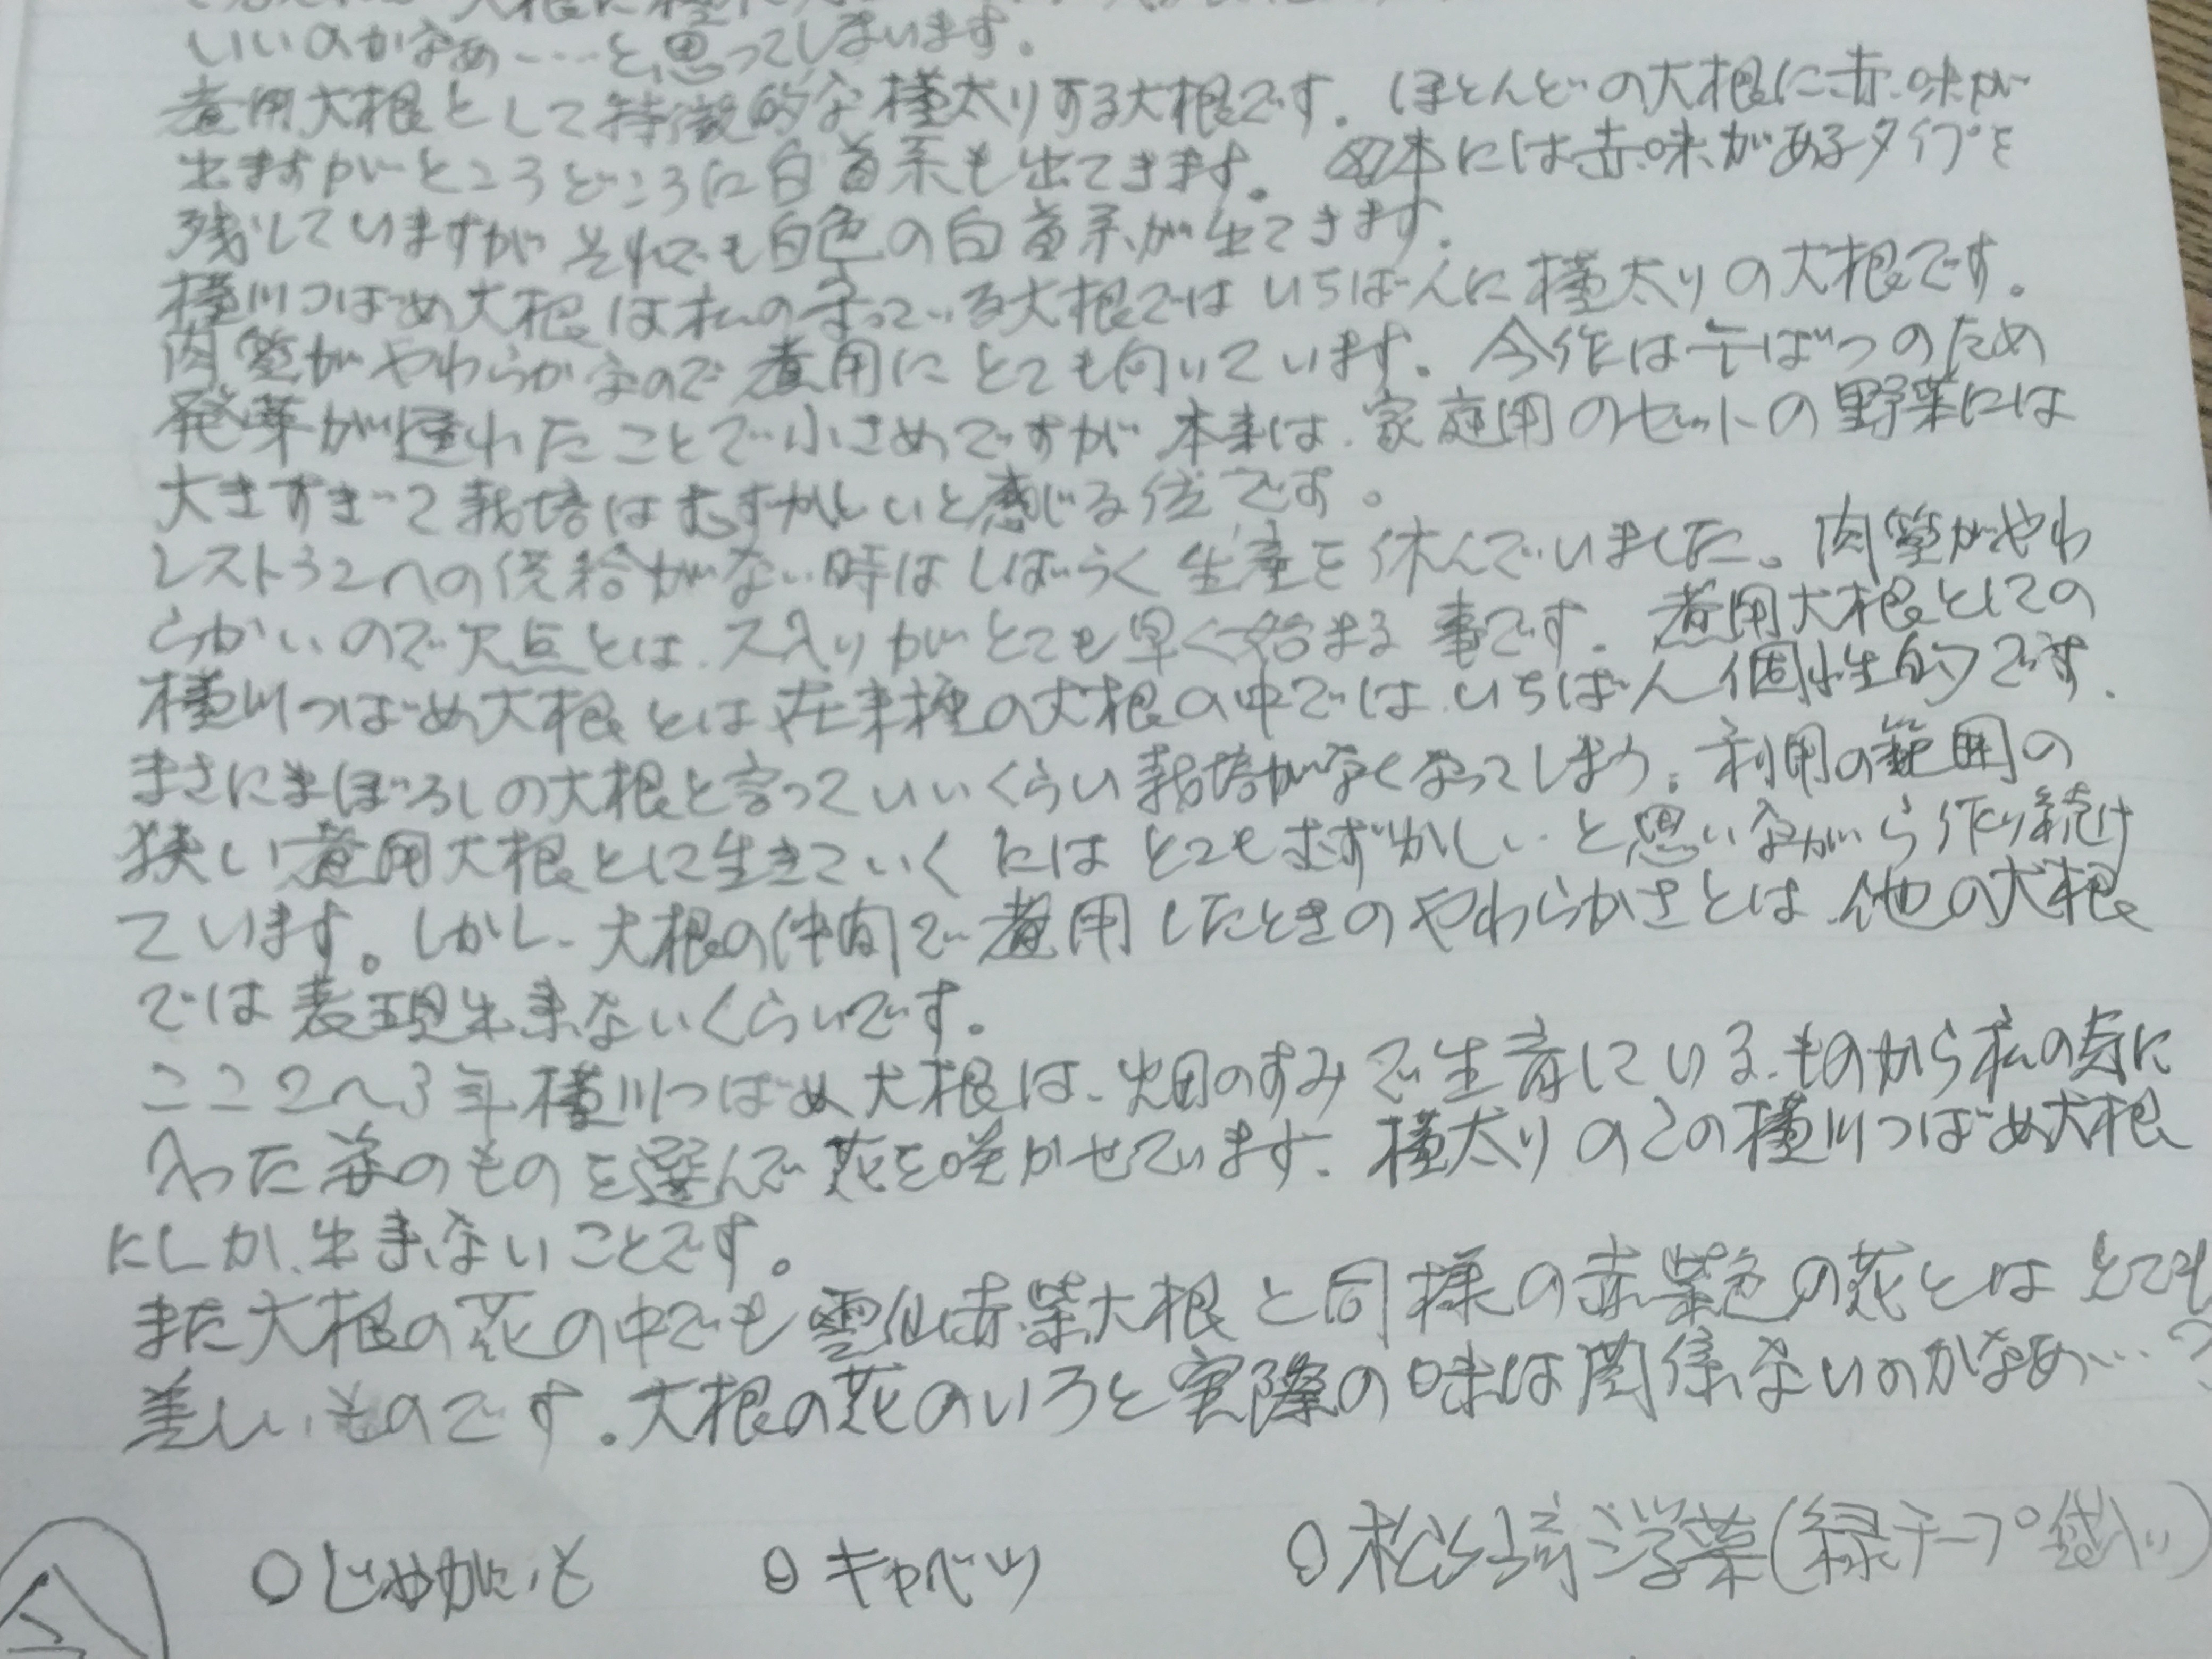 いいのかなぁ……と思ってしまいます。
煮用大根として特徴的な横太りする大根です。ほとんどの大根に赤味が
出ますがところどころに白首系も出てきます。母本には赤味があるタイプを
残していますがそれでも白色の白首系が出てきます。
横川つばめ大根は私の守っている大根ではいちばんに横太りの大根です。
肉質がやわらかなので煮用にとても向いています。今作は干ばつのため
発芽が遅れたことで小さめですが本来は、家庭用のセットの野菜には
大きすぎて栽培はむずかしいと感じる位です。
レストランへの供給がない時はしばらく生産を休んでいました。肉質がやわ
らかいので欠点とは、ス入りがとても早く始まる事です。煮用大根としての
横川つばめ大根とは在来種の大根の中では、いちばん個性的です。
まさにまぼろしの大根と言っていいくらい栽培がなくなってしまう。利用の範囲の
狭い煮用大根として生きていくにはとてもむずかしいと思いながら作り続け
ています。しかし、大根の仲間で煮用したときのやわらかさとは、他の大根
では表現出来ないくらいです。
ここ2〜3年横川つばめ大根は、畑のすみで生育している、ものから私の気に
入った姿のものを選んで花を咲かせています。横太りのこの横川つばめ大根
にしか、出来ないことです。
また大根の花の中でも雲仙赤紫大根と同様の赤紫色の花とはとても
差しいものです。大根の花のいろと実際の味は関係ないのかなぁ…?
○じゃがいも ○キャベツ ○松ヶ崎浮菜(緑テープ袋入り)